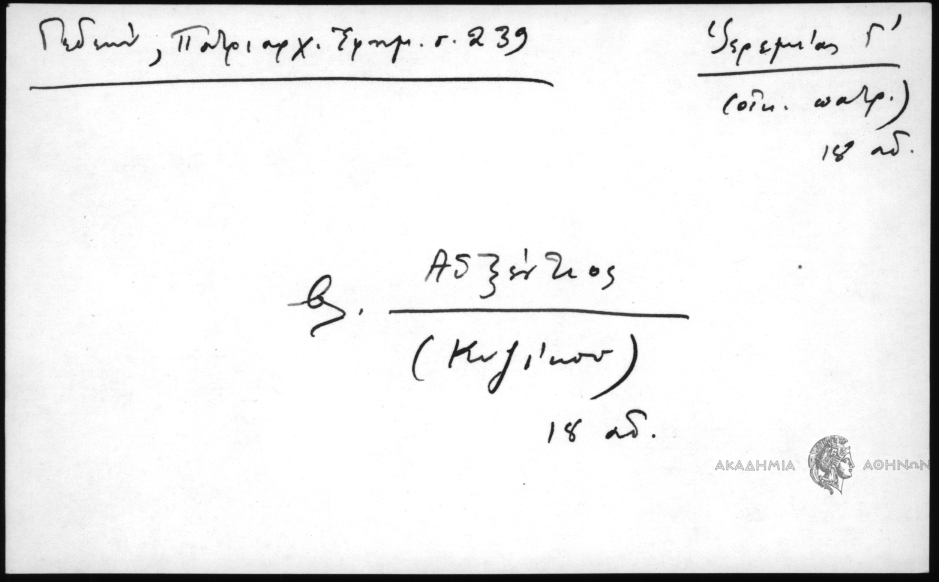 Γεδεών, Πατριαρχ. Έφημ. σ. 239
Ἱερεμίας Γ'
(οἰκ. πατρ.)
18 αἰ.
βλ. Αὐξέντιος
(Κυζίκου)
18 αἰ.
ΑΚΑΔΗΜΙΑ ΑΘΗΝΩΝ